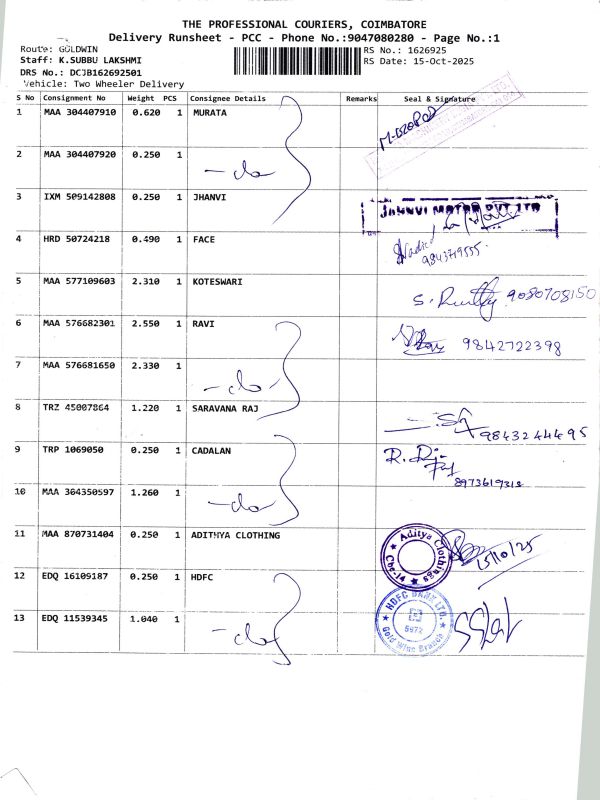 THE PROFESSIONAL COURIERS, COIMBATORE
Delivery Runsheet - PCC - Phone No.:9047080280 - Page No.:1
Route: GOLDWIN RS No.: 1626925
Staff: K.SUBBU LAKSHMI RS Date: 15-Oct-2025
DRS No.: DCJB162692501
Vehicle: Two Wheeler Delivery
S No Consignment No Weight PCS Consignee Details Remarks Seal & Signature
1 MAA 304407910 0.620 1 MURATA
2 MAA 304407920 0.250 1 -do-
3 IXM 509142808 0.250 1 JHANVI JAHNVI MOTOR PVT LTD
4 HRD 50724218 0.490 1 FACE 9843719555
5 MAA 577109603 2.310 1 KOTESWARI 9080708150
6 MAA 576682301 2.550 1 RAVI 9842722398
7 MAA 576681650 2.330 1 -do-
8 TRZ 45007864 1.220 1 SARAVANA RAJ 9843244495
9 TRP 1069050 0.250 1 CADALAN 8973619318
10 MAA 364350597 1.260 1 -do-
11 MAA 870731404 0.250 1 ADITHYA CLOTHING Aditya Clothings Cbe-14 15/10/25
12 EDQ 16109187 0.250 1 HDFC HDFC BANK LTD. 5972 Gold Wins Branch
13 EDQ 11539345 1.040 1 -do-